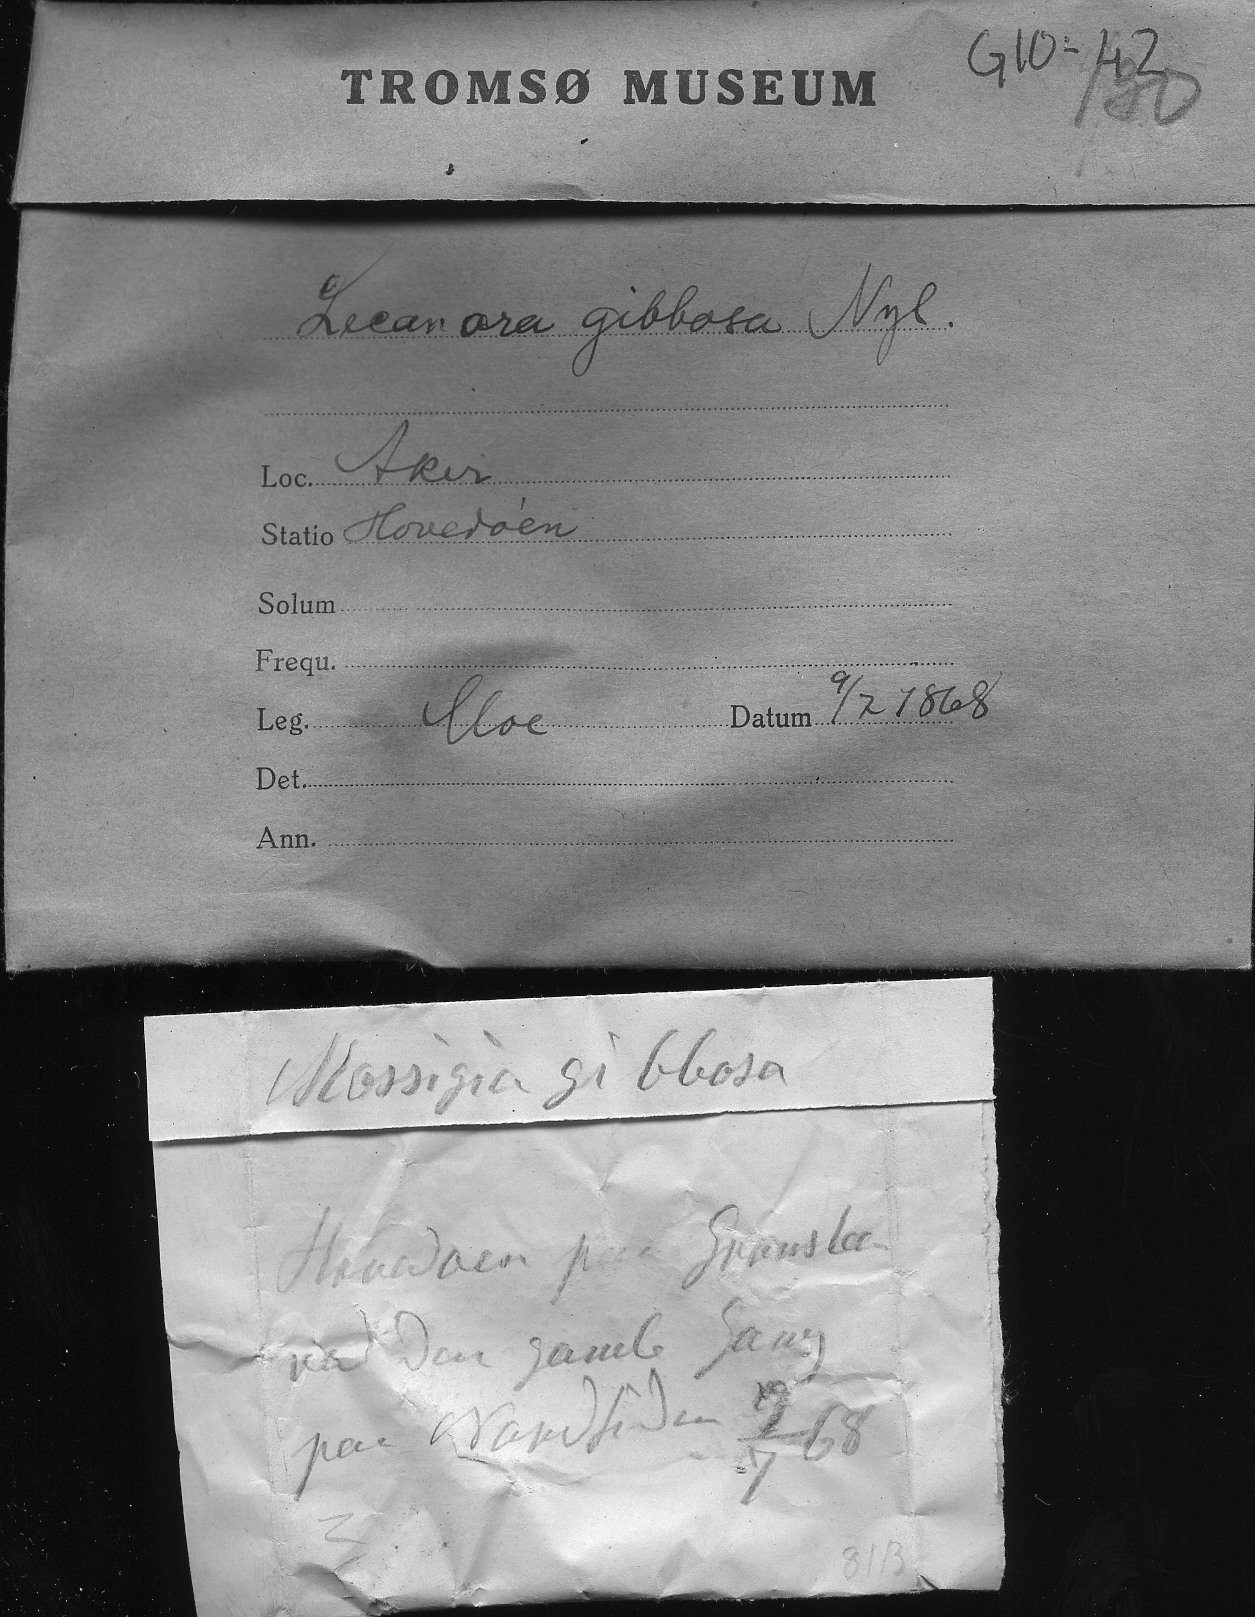 TROMSØ MUSEUM
G10-42
180
Lecanora gibbosa Nyl.
Loc. Aker
Statio Hovedöen
Solum
Frequ.
Leg. Moe Datum 9/7 1868
Det.
Ann.
gibbosa
Hovedoen paa
ved den gamle Gang
paa Nordsiden 9/7 68
M
8113